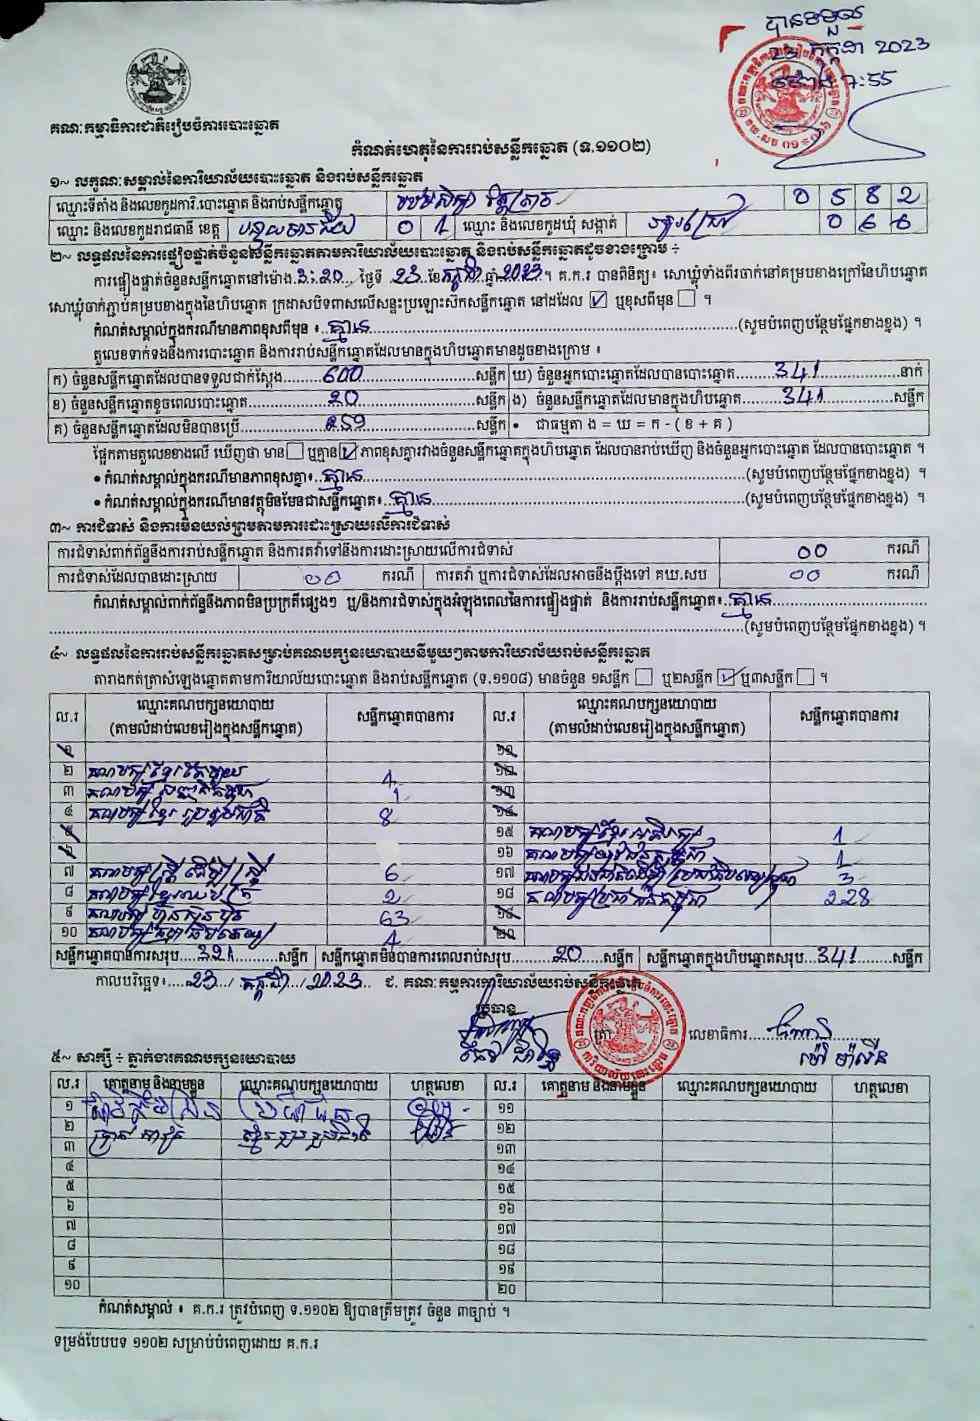 បានទទួល
23 កក្កដា 2023
ម៉ោង ៤:55
គណៈកម្មាធិការជាតិរៀបចំការបោះឆ្នោត
កំណត់ហេតុនៃការរាប់សន្លឹកឆ្នោត (ទ.១១០២)
១~ លក្ខណៈសម្គាល់នៃការិយាល័យបោះឆ្នោត និងរាប់សន្លឹកឆ្នោត
ឈ្មោះទីតាំង និងលេខកូដការិ.បោះឆ្នោត និងរាប់សន្លឹកឆ្នោត 0 5 8 2
ឈ្មោះ និងលេខកូដរាជធានី ខេត្ត បន្ទាយមានជ័យ 0 1 ឈ្មោះ និងលេខកូដឃុំ សង្កាត់ 0 6 6
២~ លទ្ធផលនៃការផ្ទៀងផ្ទាត់ចំនួនសន្លឹកឆ្នោតតាមការិយាល័យបោះឆ្នោត និងរាប់សន្លឹកឆ្នោតដូចខាងក្រោម ÷
ការផ្ទៀងផ្ទាត់ចំនួនសន្លឹកឆ្នោតនៅម៉ោង 3:20 ថ្ងៃទី 23 ខែ កក្កដា ឆ្នាំ 2023 ។ គ.ក.រ បានពិនិត្យ៖ សោឃ្លុំទាំងពីរចាក់នៅគម្របខាងក្រៅនៃហិបឆ្នោត
សោឃ្លុំចាក់ភ្ជាប់គម្របខាងក្នុងនៃហិបឆ្នោត ក្រដាសបិទពាសលើសន្ទះប្រឡោះស៊កសន្លឹកឆ្នោត នៅដដែល ☑ ឬខុសពីមុន ☐ ។
កំណត់សម្គាល់ក្នុងករណីមានភាពខុសពីមុន ៖ គ្មាន (សូមបំពេញបន្ថែមផ្នែកខាងខ្នង) ។
តួលេខទាក់ទងនឹងការបោះឆ្នោត និងការរាប់សន្លឹកឆ្នោតដែលមានក្នុងហិបឆ្នោតមានដូចខាងក្រោម ៖
ក) ចំនួនសន្លឹកឆ្នោតដែលបានទទួលជាក់ស្តែង 600 សន្លឹក ឃ) ចំនួនអ្នកបោះឆ្នោតដែលបានបោះឆ្នោត 341 នាក់
ខ) ចំនួនសន្លឹកឆ្នោតខូចពេលបោះឆ្នោត 20 សន្លឹក ង) ចំនួនសន្លឹកឆ្នោតដែលមានក្នុងហិបឆ្នោត 341 សន្លឹក
គ) ចំនួនសន្លឹកឆ្នោតដែលមិនបានប្រើ 259 សន្លឹក • ជាធម្មតា ង = ឃ = ក - ( ខ + គ )
ផ្អែកតាមតួលេខខាងលើ ឃើញថា មាន ☐ ឬគ្មាន ☑ ភាពខុសគ្នារវាងចំនួនសន្លឹកឆ្នោតក្នុងហិបឆ្នោត ដែលបានរាប់ឃើញ និងចំនួនអ្នកបោះឆ្នោត ដែលបានបោះឆ្នោត ។
• កំណត់សម្គាល់ក្នុងករណីមានភាពខុសគ្នា៖ គ្មាន (សូមបំពេញបន្ថែមផ្នែកខាងខ្នង) ។
• កំណត់សម្គាល់ក្នុងករណីមានវត្ថុមិនមែនជាសន្លឹកឆ្នោត៖ គ្មាន (សូមបំពេញបន្ថែមផ្នែកខាងខ្នង) ។
៣~ ការជំទាស់ និងការមិនយល់ព្រមតាមការដោះស្រាយលើការជំទាស់
ការជំទាស់ពាក់ព័ន្ធនឹងការរាប់សន្លឹកឆ្នោត និងការតវ៉ាទៅនឹងការដោះស្រាយលើការជំទាស់ 00 ករណី
ការជំទាស់ដែលបានដោះស្រាយ 00 ករណី ការតវ៉ា ឬការជំទាស់ដែលអាចនឹងប្តឹងទៅ គឃ.សប 00 ករណី
កំណត់សម្គាល់ពាក់ព័ន្ធនឹងភាពមិនប្រក្រតីផ្សេងៗ ឬ/និងការជំទាស់ក្នុងអំឡុងពេលនៃការផ្ទៀងផ្ទាត់ និងការរាប់សន្លឹកឆ្នោត៖ គ្មាន
(សូមបំពេញបន្ថែមផ្នែកខាងខ្នង) ។
៤~ លទ្ធផលនៃការរាប់សន្លឹកឆ្នោតសម្រាប់គណបក្សនយោបាយនីមួយៗតាមការិយាល័យរាប់សន្លឹកឆ្នោត
តារាងកត់ត្រាសំឡេងឆ្នោតតាមការិយាល័យបោះឆ្នោត និងរាប់សន្លឹកឆ្នោត (ទ.១១០៨) មានចំនួន ១សន្លឹក ☐ ឬ២សន្លឹក ☑ ឬ៣សន្លឹក ☐ ។
ល.រ ឈ្មោះគណបក្សនយោបាយ សន្លឹកឆ្នោតបានការ ល.រ ឈ្មោះគណបក្សនយោបាយ សន្លឹកឆ្នោតបានការ
(តាមលំដាប់លេខរៀងក្នុងសន្លឹកឆ្នោត) (តាមលំដាប់លេខរៀងក្នុងសន្លឹកឆ្នោត)
១ ១១
២ គណបក្សខ្មែរតែមួយ 4 ១២
៣ 1 ១៣
៤ គណបក្សខ្មែររួបរួមជាតិ 8 ១៤
៥ ១៥ គណបក្សខ្មែរអភិរក្ស 1
៦ ១៦ គណបក្សយុវជនកម្ពុជា 1
៧ គណបក្សស្ត្រីដើម្បីស្ត្រី 6 ១៧ 3
៨ 2 ១៨ គណបក្សប្រជាជនកម្ពុជា 228
៩ គណបក្សហ្វ៊ុនស៊ិនប៉ិច 63 ១៩
១០ គណបក្សធម្មាធិបតេយ្យ 4 ២០
សន្លឹកឆ្នោតបានការសរុប 321 សន្លឹក សន្លឹកឆ្នោតមិនបានការពេលរាប់សរុប 20 សន្លឹក សន្លឹកឆ្នោតក្នុងហិបឆ្នោតសរុប 341 សន្លឹក
កាលបរិច្ឆេទ៖ 23 / កក្កដា / 2023 ជ. គណៈកម្មការការិយាល័យរាប់សន្លឹកឆ្នោត
ប្រធាន ត្រា លេខាធិការ
៥~ សាក្សី ÷ ភ្នាក់ងារគណបក្សនយោបាយ
ល.រ គោត្តនាម និងនាមខ្លួន ឈ្មោះគណបក្សនយោបាយ ហត្ថលេខា ល.រ គោត្តនាម និងនាមខ្លួន ឈ្មោះគណបក្សនយោបាយ ហត្ថលេខា
១ ១១
២ ១២
៣ ១៣
៤ ១៤
៥ ១៥
៦ ១៦
៧ ១៧
៨ ១៨
៩ ១៩
១០ ២០
កំណត់សម្គាល់ ៖ គ.ក.រ ត្រូវបំពេញ ទ.១១០២ ឱ្យបានត្រឹមត្រូវ ចំនួន ៣ច្បាប់ ។
ទម្រង់បែបបទ ១១០២ សម្រាប់បំពេញដោយ គ.ក.រ